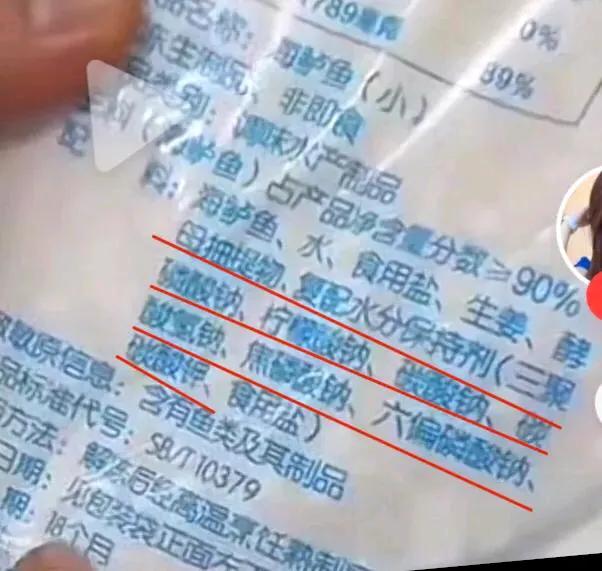 789毫克 0%
39%
品名称：海鲈鱼（小）
速冻生制品、非即食
品类别：调味水产制品
配料（海鲈鱼）占产品净含量分数≥90%
料：海鲈鱼、水、食用盐、生姜、酵
母抽提物、复配水分保持剂（三聚
磷酸钠、柠檬酸钠、碳酸钠、碳
酸氢钠、焦磷酸钠、六偏磷酸钠、
碳酸钾、食用盐）
致敏原信息：含有鱼类及其制品
品标准代号：SB/T10379
方法：解冻后经高温烹饪熟制
日期：见包装袋正面
期：18个月